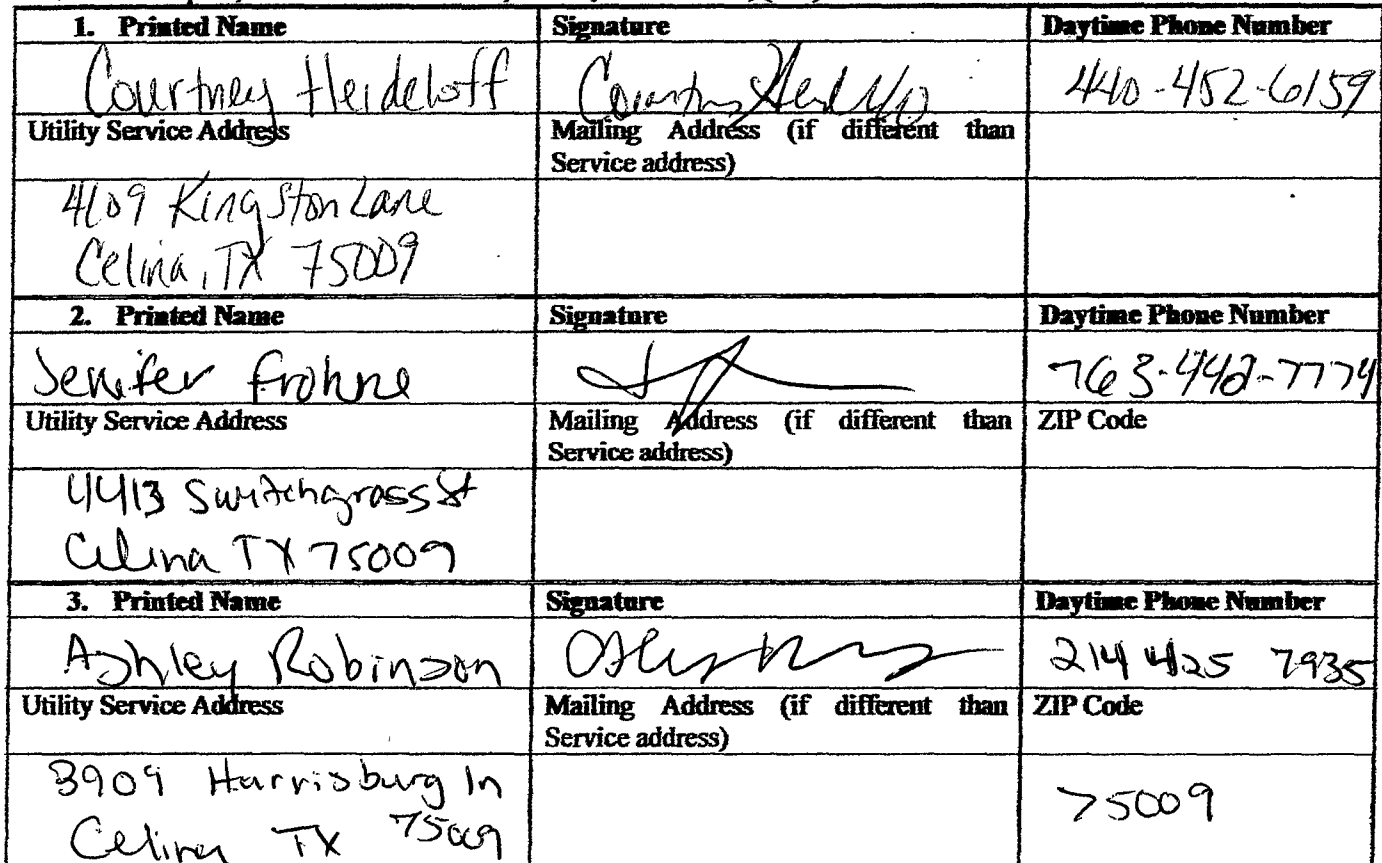 1. Printed Name Signature Daytime Phone Number
Courtney Heideloff 440-452-6159
Utility Service Address Mailing Address (if different than
Service address)
4109 Kingston Lane
Celina, TX 75009
2. Printed Name Signature Daytime Phone Number
Jenifer Frohne 763-442-7774
Utility Service Address Mailing Address (if different than ZIP Code
Service address)
4413 Switchgrass St
Celina TX 75009
3. Printed Name Signature Daytime Phone Number
Ashley Robinson 214 425 7935
Utility Service Address Mailing Address (if different than ZIP Code
Service address)
3909 Harrisburg ln
75009
Celina TX 75009